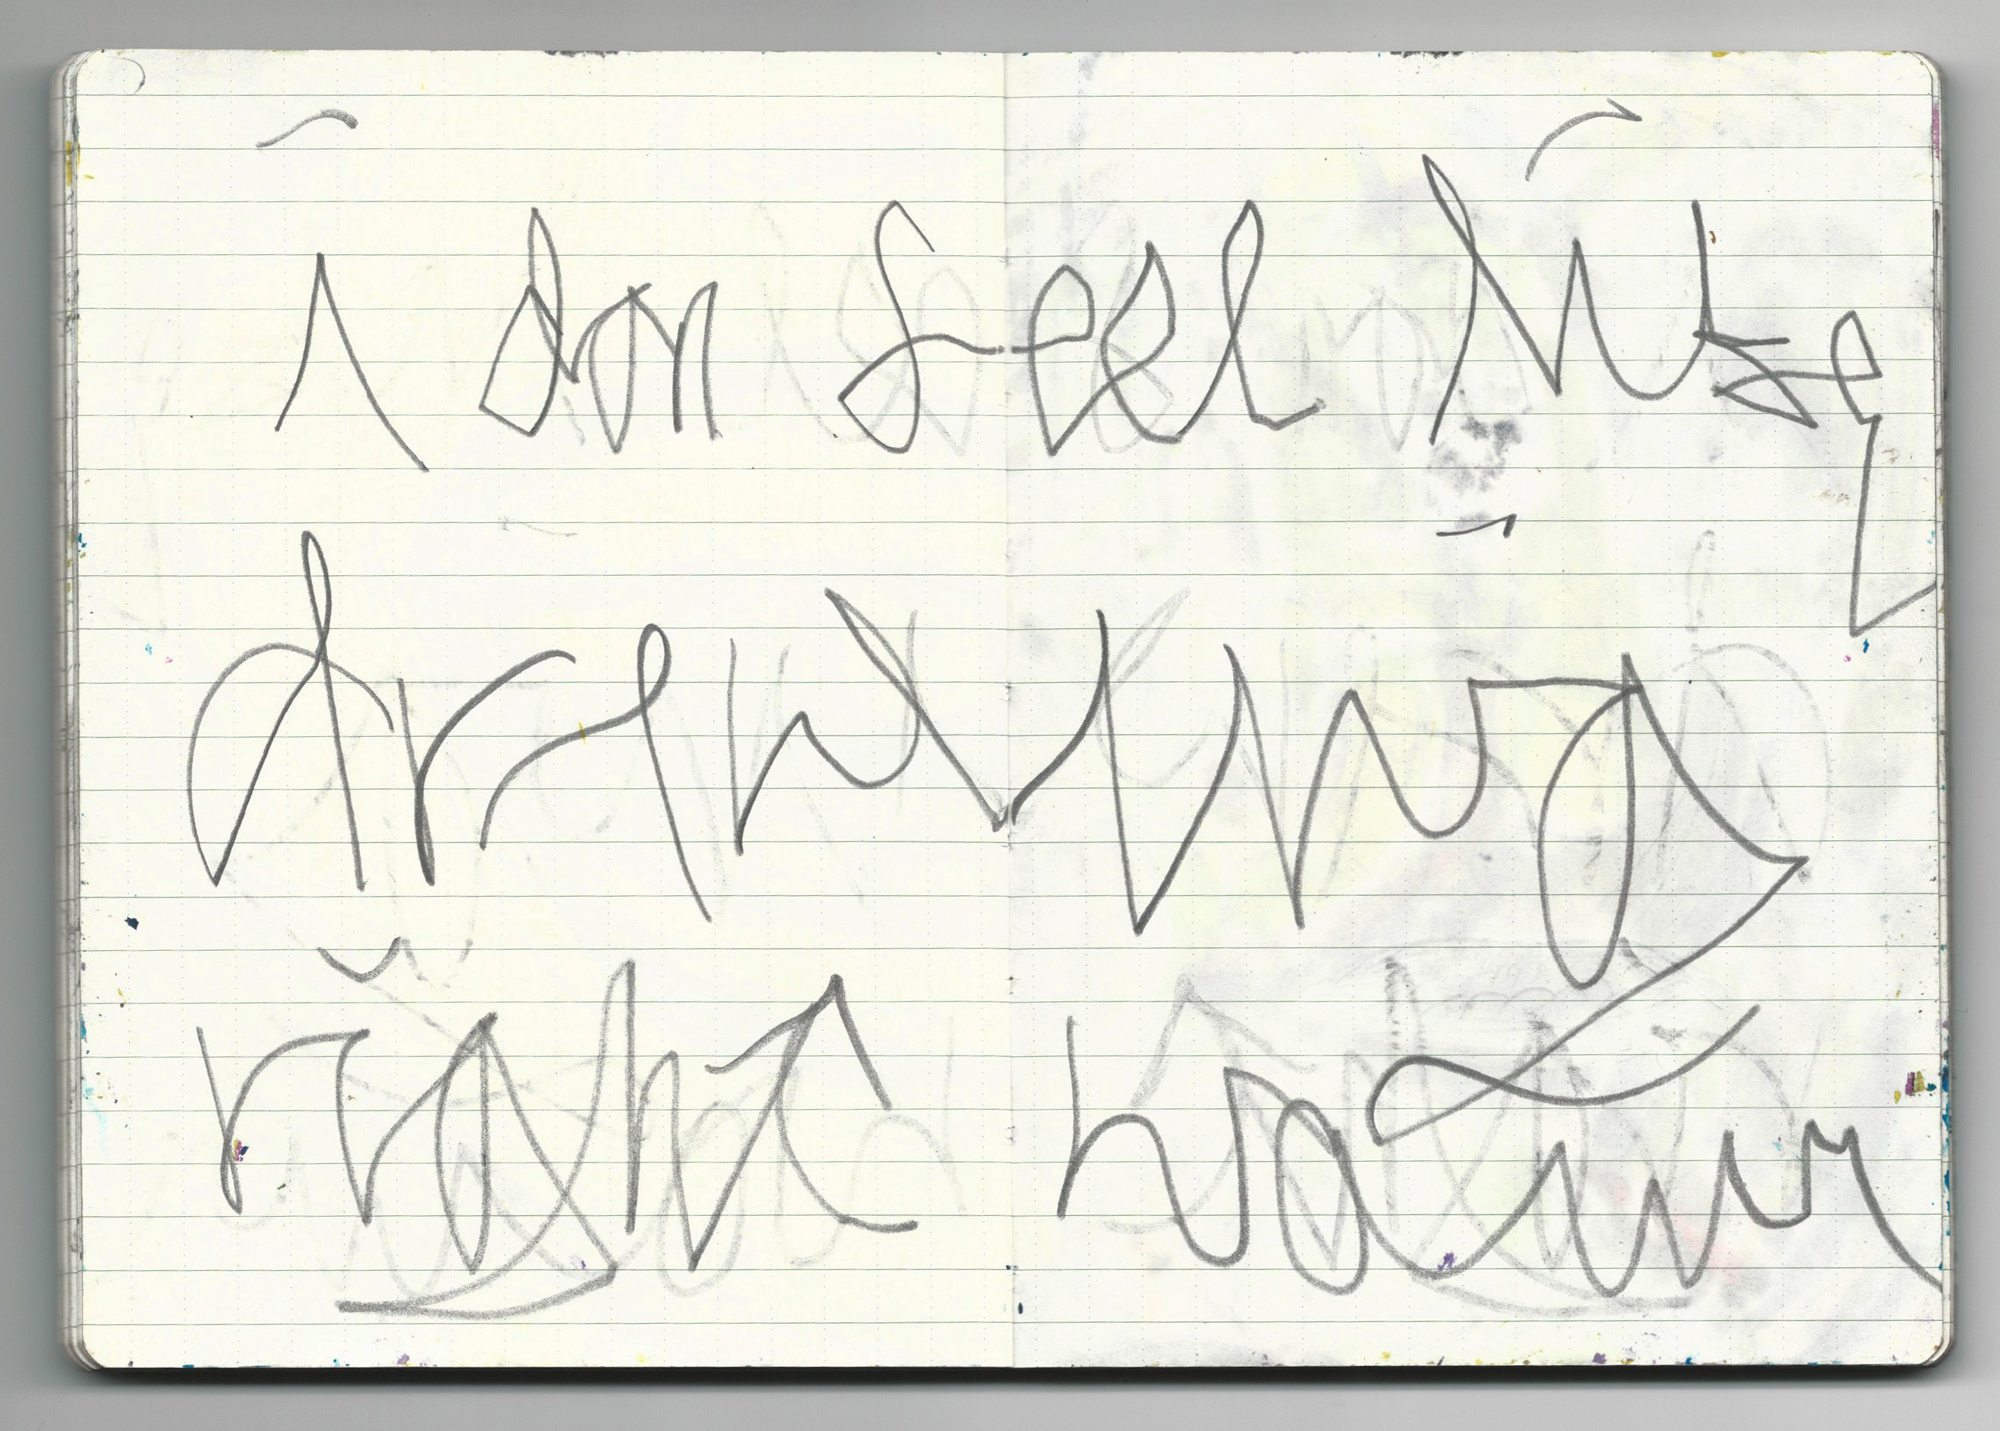 i don feel like
drawing
right